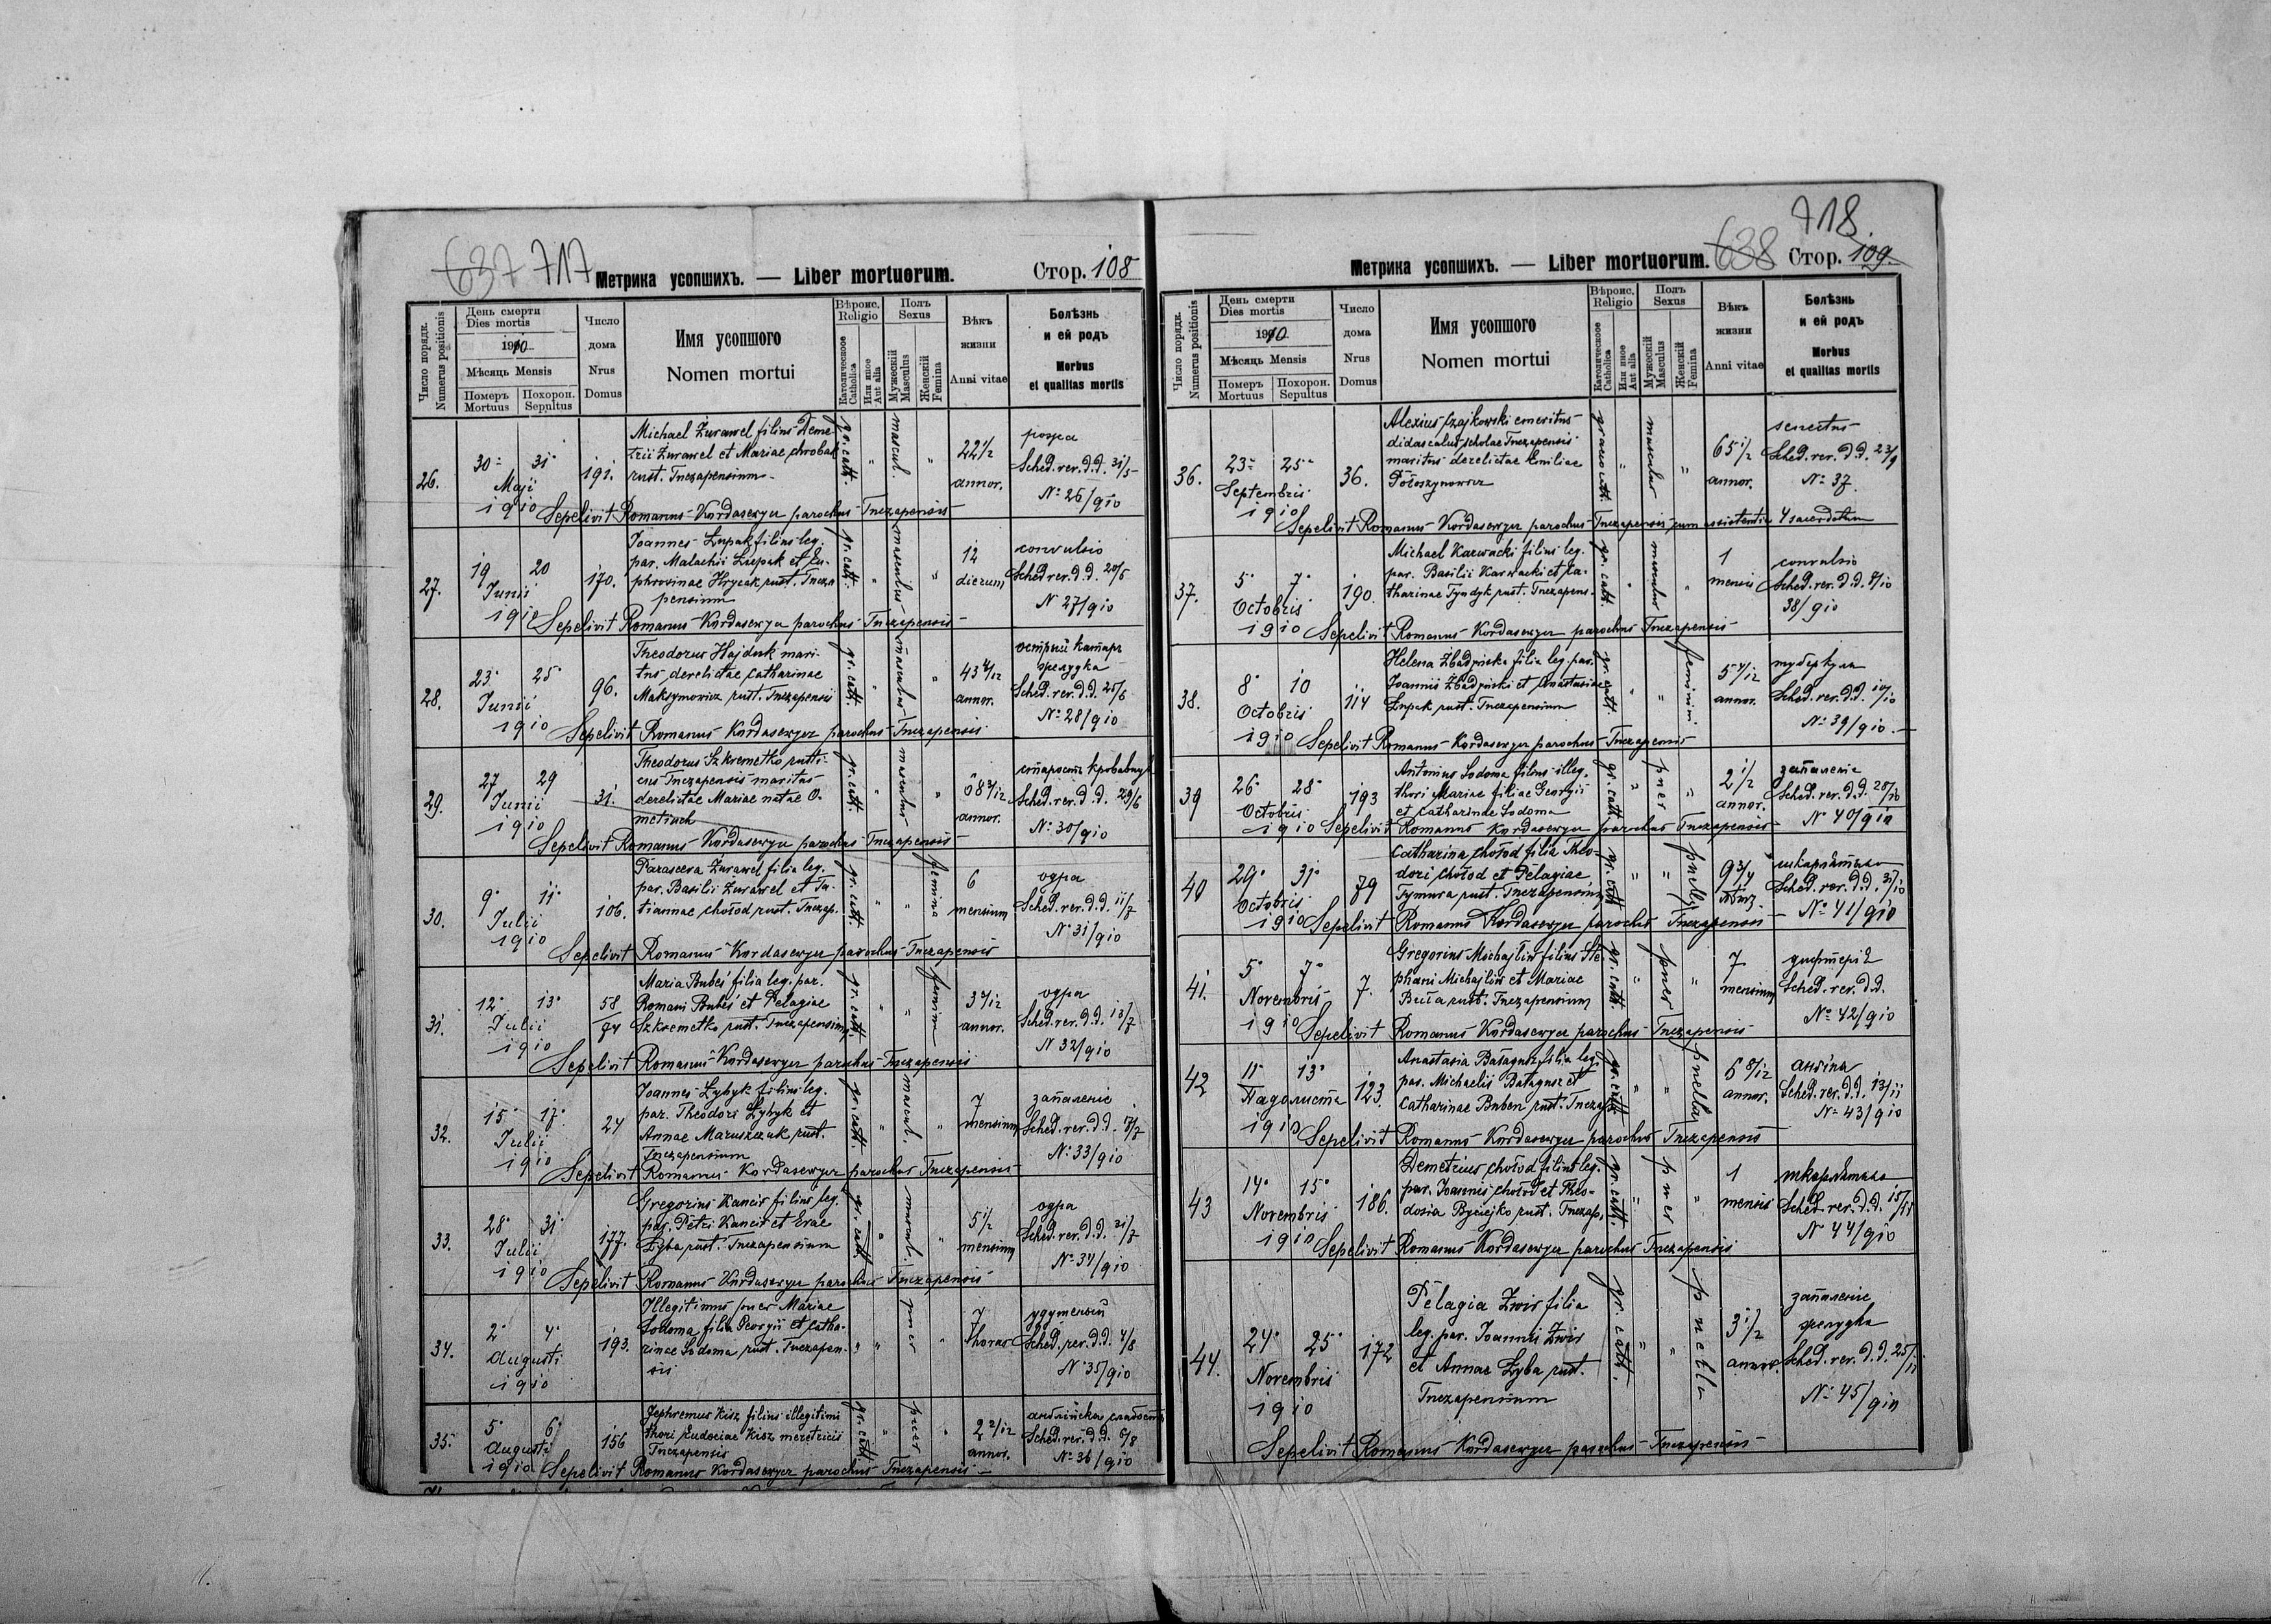 637 717
Метрика усопшихъ. — Liber mortuorum.
Стор. 108
Число порядк.
Numerus positionis
День смерти
Dies mortis
1910
Мѣсяць Mensis
Померъ
Mortuus
Похорон.
Sepultus
Число
дома
Nrus
Domus
Имя усопшого
Nomen mortui
Вѣроис.
Religio
Католическоое
Catholica
Или иное
Aut alia
Полъ
Sexus
Мужескій
Masculus
Женскій
Femina
Вѣкъ
жизни
Anni vitae
Болѣзнь
и ей родъ
Morbus
et qualitas mortis
26.
30 31
Maji
1910
191.
Michael Żurawel filius Deme
trii Żurawel et Mariae Chrobak
rust. Tnczapensium
gr. cath.
"
mascul.
"
22 1/2
annor.
рожа
Sched. rer. d.d. 31/5
No 26/910
Sepelivit Romanus Kordasewycz parochus Tuczapensis
27.
19 20
Junii
1910
170.
Joannes Łupak filius leg.
par. Malachii Łupak et Eu-
phrosinae Hrycak rust. Tucza
pensium
gr. cath.
"
masculus
"
12
dierum
convulsio
Sched. rer. d.d. 20/6
N 27/910
Sepelivit Romanus Kordasewycz parochus Tuczapensis
28.
23 25
Junii
1910
96.
Theodorus Hajduk mari-
tus derelictae Catharinae
Maksymowicz rust. Tuczapensis
gr. cath.
"
masculus
"
43 4/12
annor.
острый катарь
желудка
Sched. rer. d.d. 25/6
No 28/910
Sepelivit Romanus Kordasewycz parochus Tuczapensis
29.
27 29
Junii
1910
31.
Theodorus Szkremetko rusti-
cus Tuczapensis maritus
derelictae Mariae natae O-
metiuch
gr. cath.
"
masculus
"
68 2/12
annor.
Sched. rer. d.d. 29/6
No 30/910
Sepelivit Romanus Kordasewycz parochus Tuczapensis
30.
9 11
Julii
1910
106.
Parasceva Żurawel filia leg.
par. Basilii Żurawel et Ta-
tiannae Chołod rust. Tuczap.
gr. cath.
"
"
femina
6
mensium
одра
Sched. rer. d.d. 11/7
No 31/910
Sepelivit Romanus Kordasewycz parochus Tuczapensis
31.
12 13
Julii
1910
58
94
Maria Bubeś filia leg. par.
Romani Bubeś et Pelagiae
Szkremetko rust. Tuczapensium
gr. cath.
"
"
femina
3 4/12
annor.
одра
Sched. rer. d.d. 13/7
N 32/910
Sepelivit Romanus Kordasewycz parochus Tuczapensis
32.
15 17
Julii
1910
24
Joannes Łybyk filius leg.
par. Theodori Łybyk et
Annae Maruszczak rust.
Tuczapensium
gr. cath.
"
mascul.
"
7
mensium
запаленіе
Sched. rer. d.d. 17/7
No 33/910
Sepelivit Romanus Kordasewycz parochus Tuczapensis
33.
28 31
Julii
1910
177.
Gregorius Kancir filius leg.
par. Petri Kancir et Evae
Łyba rust. Tuczapensium
gr. cath.
"
mascul.
"
5 1/2
mensium
одра
Sched. rer. d.d. 31/7
No 34/910
Sepelivit Romanus Kordasewycz parochus Tuczapensis
34.
2 4
Augusti
1910
193.
Illegitimus puer Mariae
Sodoma filia Georgii et Catha-
rinae Sodoma rust. Tuczapen-
sis
"
"
puer
"
7
horas
Sched. rer. d.d. 4/8
N 35/910
35.
5 6
Augusti
1910
156
Jephremus Kisz filius illegitimi
thori Eudociae Kisz meretricis
Tuczapensis
gr. cath.
"
puer
"
2 2/12
annor.
англійска слабость
Sched. rer. d.d. 6/8
No 36/910
Sepelivit Romanus Kordasewycz parochus Tuczapensis
718
Метрика усопшихъ. — Liber mortuorum.
638
Стор. 109
Число порядк.
Numerus positionis
День смерти
Dies mortis
1910
Мѣсяць Mensis
Померъ
Mortuus
Похорон.
Sepultus
Число
дома
Nrus
Domus
Имя усопшого
Nomen mortui
Вѣроис.
Religio
Католическоое
Catholica
Или иное
Aut alia
Полъ
Sexus
Мужескій
Masculus
Женскій
Femina
Вѣкъ
жизни
Anni vitae
Болѣзнь
и ей родъ
Morbus
et qualitas mortis
36.
23 25
Septembris
1910
36.
Alexius Czajkowski emeritus
didascalus scholae Tuczapensis
maritus derelictae Emiliae
Połoszynowicz
graeco cath.
"
masculus
"
65 1/2
annor.
senectus
Sched. rer. d.d. 23/9
No 37.
Sepelivit Romanus Kordasewycz parochus Tuczapensis cum assistentia 4 sacerdotum
37.
5 7
Octobris
1910
190
Michael Karwacki filius leg.
par. Basilii Karwacki et Ca-
tharinae Tyndyk rust. Tuczapens.
gr. cath.
"
masculus
"
1
mensis
convulsio
Sched. rer. d.d. 7/10
38/910
Sepelivit Romanus Kordasewycz parochus Tuczapensis
38.
8 10
Octobris
1910
114
Helena Zbadyńska filia leg. par.
Joannis Zbadyński et Anastasiae
Łupak rust. Tuczapensium
gr. cath.
"
"
feminini
5 4/12
annor.
туберкула
Sched. rer. d.d. 10/10
No 39/910
Sepelivit Romanus Kordasewycz parochus Tuczapensis
39
26 28
Octobris
1910
193
Antonius Sodoma filius illeg.
thori Mariae filiae Georgii
et Catharinae Sodoma
gr. cath
"
puer
"
2 1/2
annor.
запаленіе
Sched. rer. d.d. 28/10
No 40/910
Sepelivit Romanus Kordasewycz parochus Tuczapensis
40
29 31
Octobris
1910
79
Catharina Chołod filia Theo-
dori Chołod et Pelagiae
Tymura rust. Tuczapensium
gr. cath
"
"
puella
9 3/4
шкарлятина
Sched. rer. d.d. 31/10
No 41/910
Sepelivit Romanus Kordasewycz parochus Tuczapensis
41.
5 7
Novembris
1910
7.
Gregorius Michajliw filius Ste-
phani Michajliw et Mariae
rust. Tuczapensium
gr. cath.
"
puer
"
7
mensium
дифтерія
Sched. rer. d.d.
No 42/910
Sepelivit Romanus Kordasewycz parochus Tuczapensis
42
11 13
Падолиста
1910
123.
Anastasia Bałagusz filia leg.
par. Michaelis Bałagusz et
Catharinae Buben rust. Tuczap.
gr. cath.
"
"
puella
6 8/12
annor.
ангіна
Sched. rer. d.d. 13/11
No 43/910
Sepelivit Romanus Kordasewycz parochus Tuczapensis
43
14 15
Novembris
1910
186.
Demetrius Chołod filius leg.
par. Joannis Chołod et Theo-
dosia Byciejko rust. Tuczap.
gr. cath.
"
puer
"
1
mensis
шкарлятина
Sched. rer. d.d. 15/11
N 44/910
Sepelivit Romanus Kordasewycz parochus Tuczapensis
44.
24 25
Novembris
1910
172
Pelagia Zwir filia
leg. par. Joannis Zwir
et Annae Łyba rust.
Tuczapensium
gr. cath.
"
"
puella
3 1/2
annor.
запаленіе
желудка
Sched. rer. d.d. 25/11
No 45/910
Sepelivit Romanus Kordasewycz parochus Tuczapensis